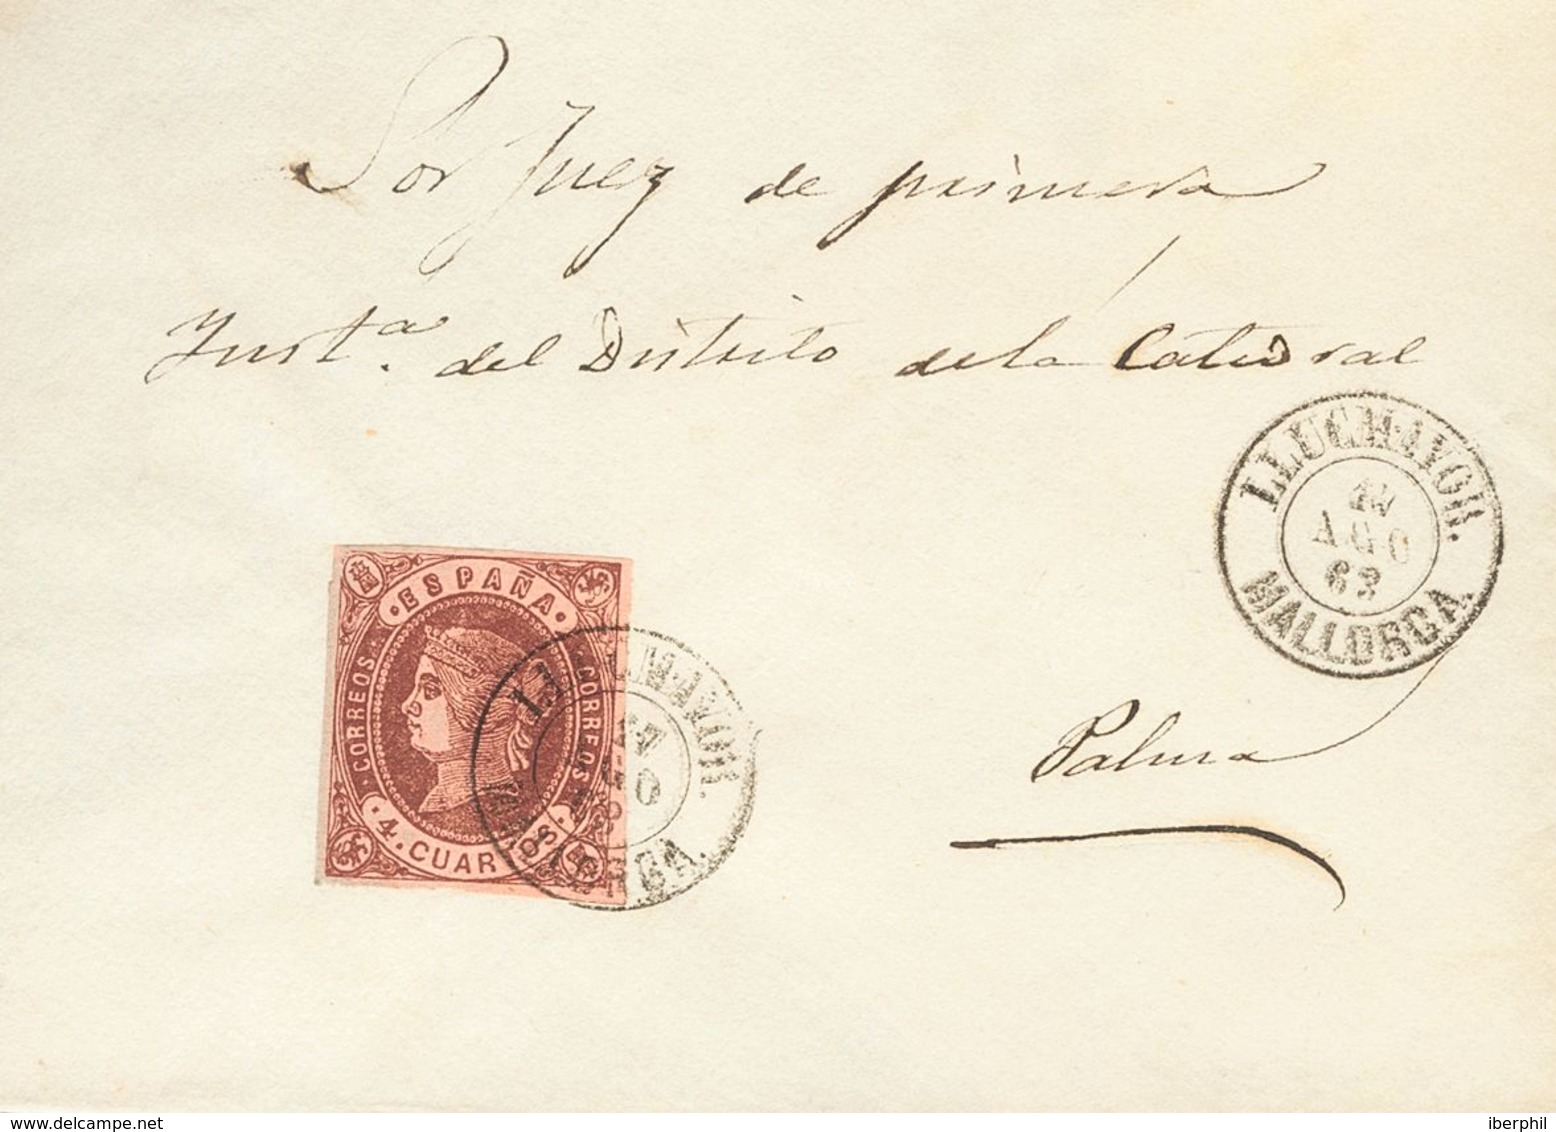 Sor Juez de primera
Inst.ª del Distrito de la Catedral
LLUCHMAYOR.
AGO
63
MALLORCA
ESPAÑA
CORREOS
CORREOS
4. CUARTOS.
Palma
delcampe.net
iberphil